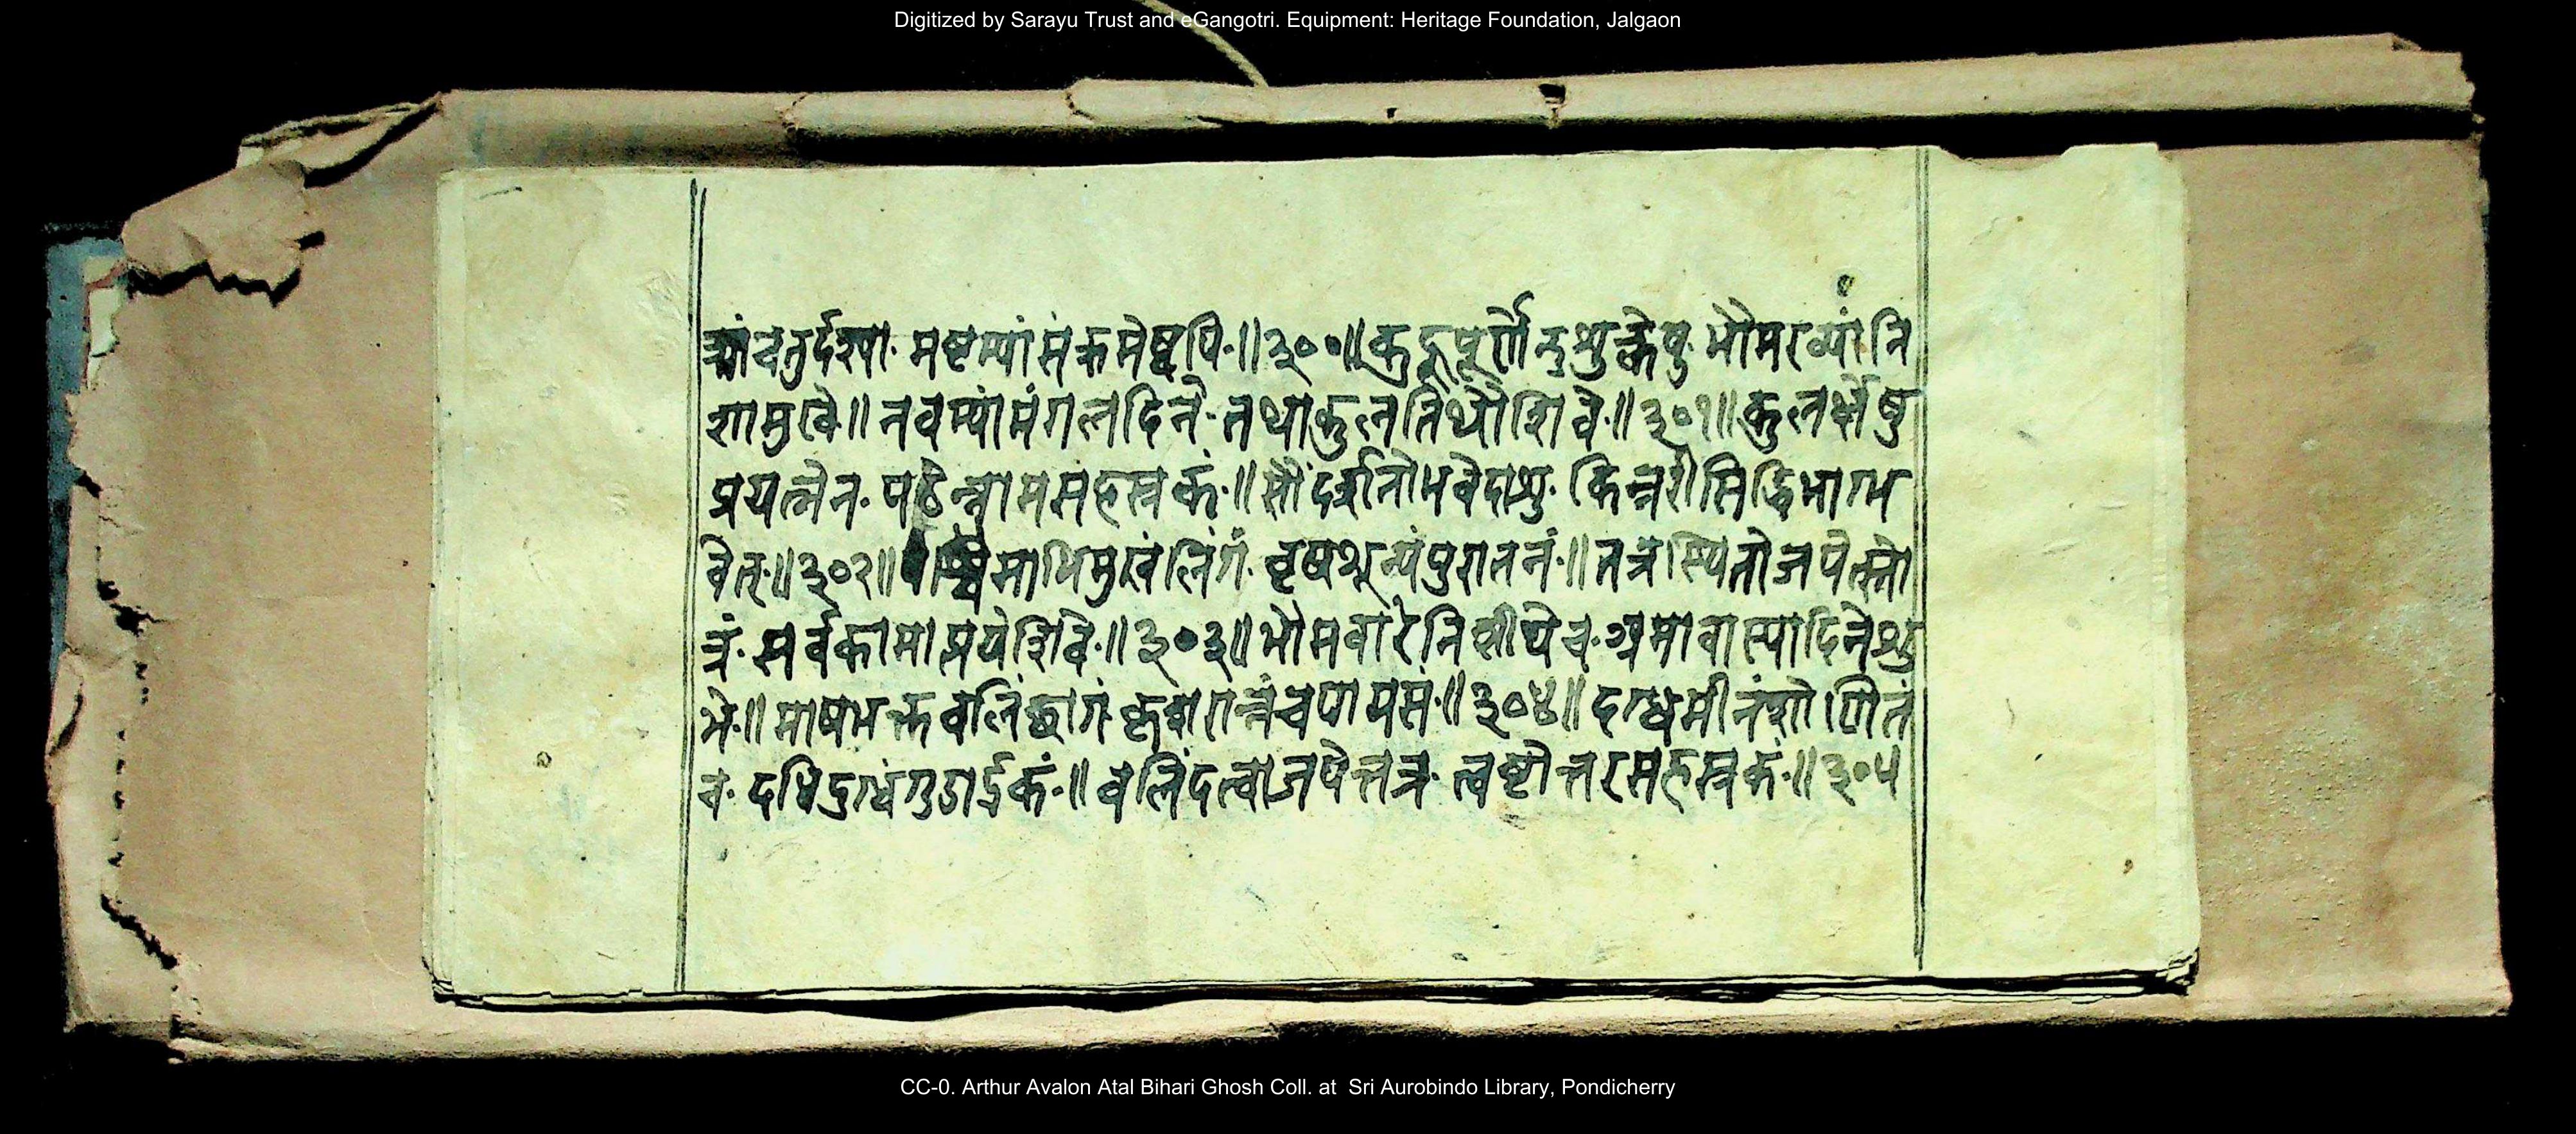 Digitized by Sarayu Trust and eGangotri. Equipment: Heritage Foundation, Jalgaon
चतुर्दश्यां मष्टम्यां संक्रमेष्वपि ॥३००॥ कुहूपूर्णेन्दुशुक्रेषु भौमरव्यां नि
शामुखे ॥ नवम्यां मंगलदिने तथा कुलतिथौ शिवे ॥३०१॥ कुलर्क्षेषु
प्रयत्नेन पठेन्नामसहस्रकं ॥ भवेदाशु किन्नरीसिद्धिभाग्भ
वेत् ॥३०२॥ पश्चिमाभिमुखं लिंगं वृषशून्यं पुरातनं ॥ तत्र स्थितो जपेत्स्तो
त्रं सर्वकामाप्तये शिवे ॥३०३॥ भौमवारे निशीथे च अमावास्यादिने शु
भे ॥ माषभक्तबलिं छागं कृशरान्नं च पायसं ॥३०४॥ दग्धमीनं शोणितं
च दधि दुग्धं गुडार्द्रकं ॥ बलिं दत्वा जपेत्तत्र त्वष्टोत्तरसहस्रकं ॥३०५
CC-0. Arthur Avalon Atal Bihari Ghosh Coll. at Sri Aurobindo Library, Pondicherry